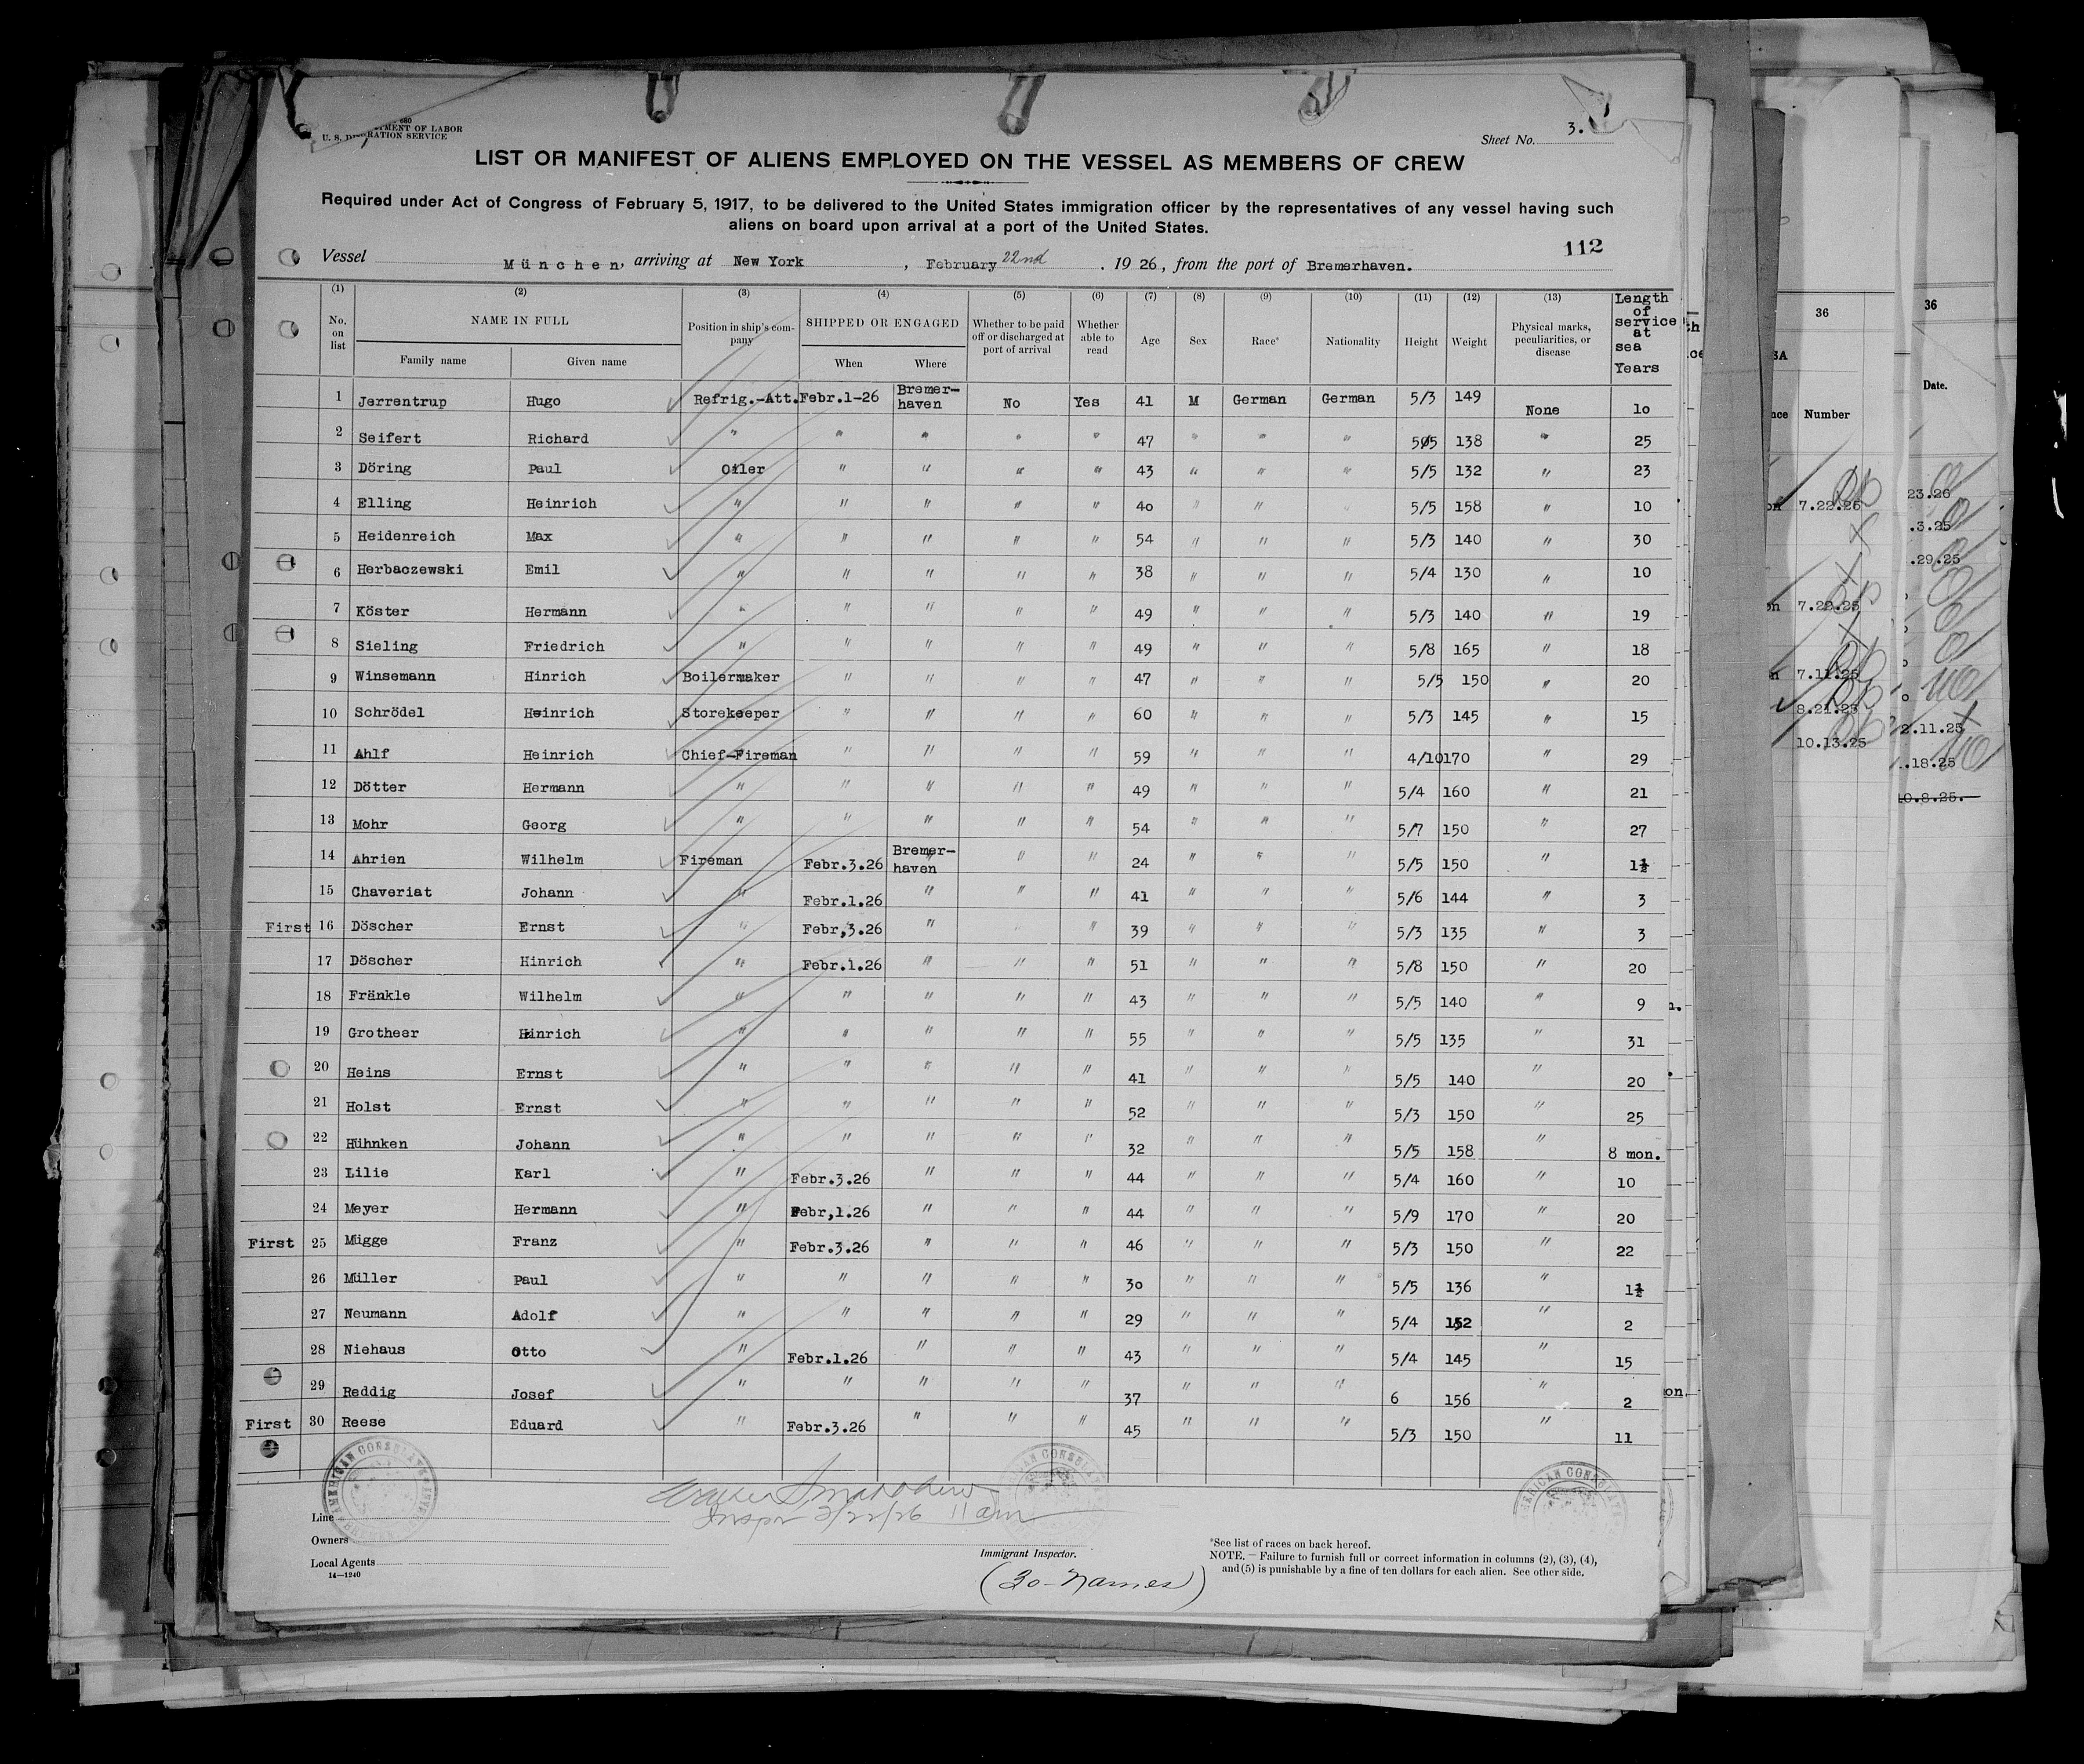 680
U. S. DEPARTMENT OF LABOR
IMMIGRATION SERVICE
Sheet No. 3.
LIST OR MANIFEST OF ALIENS EMPLOYED ON THE VESSEL AS MEMBERS OF CREW
Required under Act of Congress of February 5, 1917, to be delivered to the United States immigration officer by the representatives of any vessel having such
aliens on board upon arrival at a port of the United States.
112
Vessel München, arriving at New York, February 22nd, 1926, from the port of Bremerhaven.
(1) (2) (3) (4) (5) (6) (7) (8) (9) (10) (11) (12) (13)
No. on list NAME IN FULL Family name Given name Position in ship's company SHIPPED OR ENGAGED When Where Whether to be paid off or discharged at port of arrival Whether able to read Age Sex Race* Nationality Height Weight Physical marks, peculiarities, or disease Length of service at sea Years
1 Jerrentrup Hugo Refrig.-Att. Febr.1-26 Bremer-haven No Yes 41 M German German 5/3 149 None 1o
2 Seifert Richard " " " " " 47 " " " 505 138 " 25
3 Döring Paul Oiler " " " " 43 " " " 5/5 132 " 23
4 Elling Heinrich " " " " " 40 " " " 5/5 158 " 10
5 Heidenreich Max " " " " " 54 " " " 5/3 140 " 30
6 Herbaczewski Emil " " " " " 38 " " " 5/4 130 " 10
7 Köster Hermann " " " " " 49 " " " 5/3 140 " 19
8 Sieling Friedrich " " " " " 49 " " " 5/8 165 " 18
9 Winsemann Hinrich Boilermaker " " " " 47 " " " 5/5 150 " 20
10 Schrödel Heinrich Storekeeper " " " " 60 " " " 5/3 145 " 15
11 Ahlf Heinrich Chief-Fireman " " " " 59 " " " 4/10 170 " 29
12 Dötter Hermann " " " " " 49 " " " 5/4 160 " 21
13 Mohr Georg " " " " " 54 " " " 5/7 150 " 27
14 Ahrien Wilhelm Fireman Febr.3.26 Bremer-haven " " 24 " " " 5/5 150 " 1½
15 Chaveriat Johann " Febr.1.26 " " " 41 " " " 5/6 144 " 3
First 16 Döscher Ernst " Febr,3.26 " " " 39 " " " 5/3 135 " 3
17 Döscher Hinrich " Febr.1.26 " " " 51 " " " 5/8 150 " 20
18 Fränkle Wilhelm " " " " " 43 " " " 5/5 140 " 9
19 Grotheer Hinrich " " " " " 55 " " " 5/5 135 " 31
20 Heins Ernst " " " " " 41 " " " 5/5 140 " 20
21 Holst Ernst " " " " " 52 " " " 5/3 150 " 25
22 Hühnken Johann " " " " " 32 " " " 5/5 158 " 8 mon.
23 Lilie Karl " Febr.3.26 " " " 44 " " " 5/4 160 " 10
24 Meyer Hermann " Febr,1.26 " " " 44 " " " 5/9 170 " 20
First 25 Mügge Franz " Febr.3.26 " " " 46 " " " 5/3 150 " 22
26 Müller Paul " " " " " 30 " " " 5/5 136 " 1½
27 Neumann Adolf " " " " " 29 " " " 5/4 152 " 2
28 Niehaus Otto " Febr.1.26 " " " 43 " " " 5/4 145 " 15
29 Reddig Josef " " " " " 37 " " " 6 156 " 2
First 30 Reese Eduard " Febr.3.26 " " " 45 " " " 5/3 150 " 11
AMERICAN CONSULATE
2/22/26 11 am
Line
Owners
Local Agents
14—1240
Immigrant Inspector.
(30-Names)
*See list of races on back hereof.
NOTE. — Failure to furnish full or correct information in columns (2), (3), (4),
and (5) is punishable by a fine of ten dollars for each alien. See other side.
36
Number
7.22.26
7.22.25
7.11.25
8.21.25
10.13.25
36
Date.
23.26
.3.25
.29.25
2.11.25
.18.25
10.8.25.